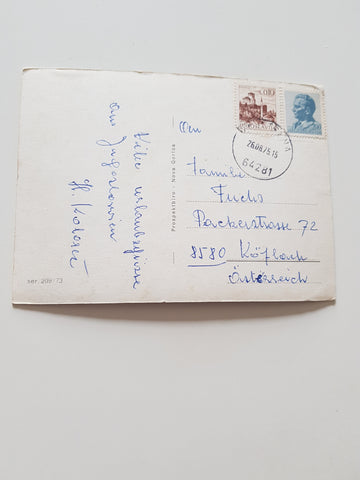 Viele Urlaubsgrüsse
aus Jugoslawien
ser. 209/73
Prospektbiro - Nova Gorica
0.10
JUGOSLAVIJA
26.08.75.15
64281
An
Familie
Fuchs
Packerstrasse 72
8580 Köflach
Österreich